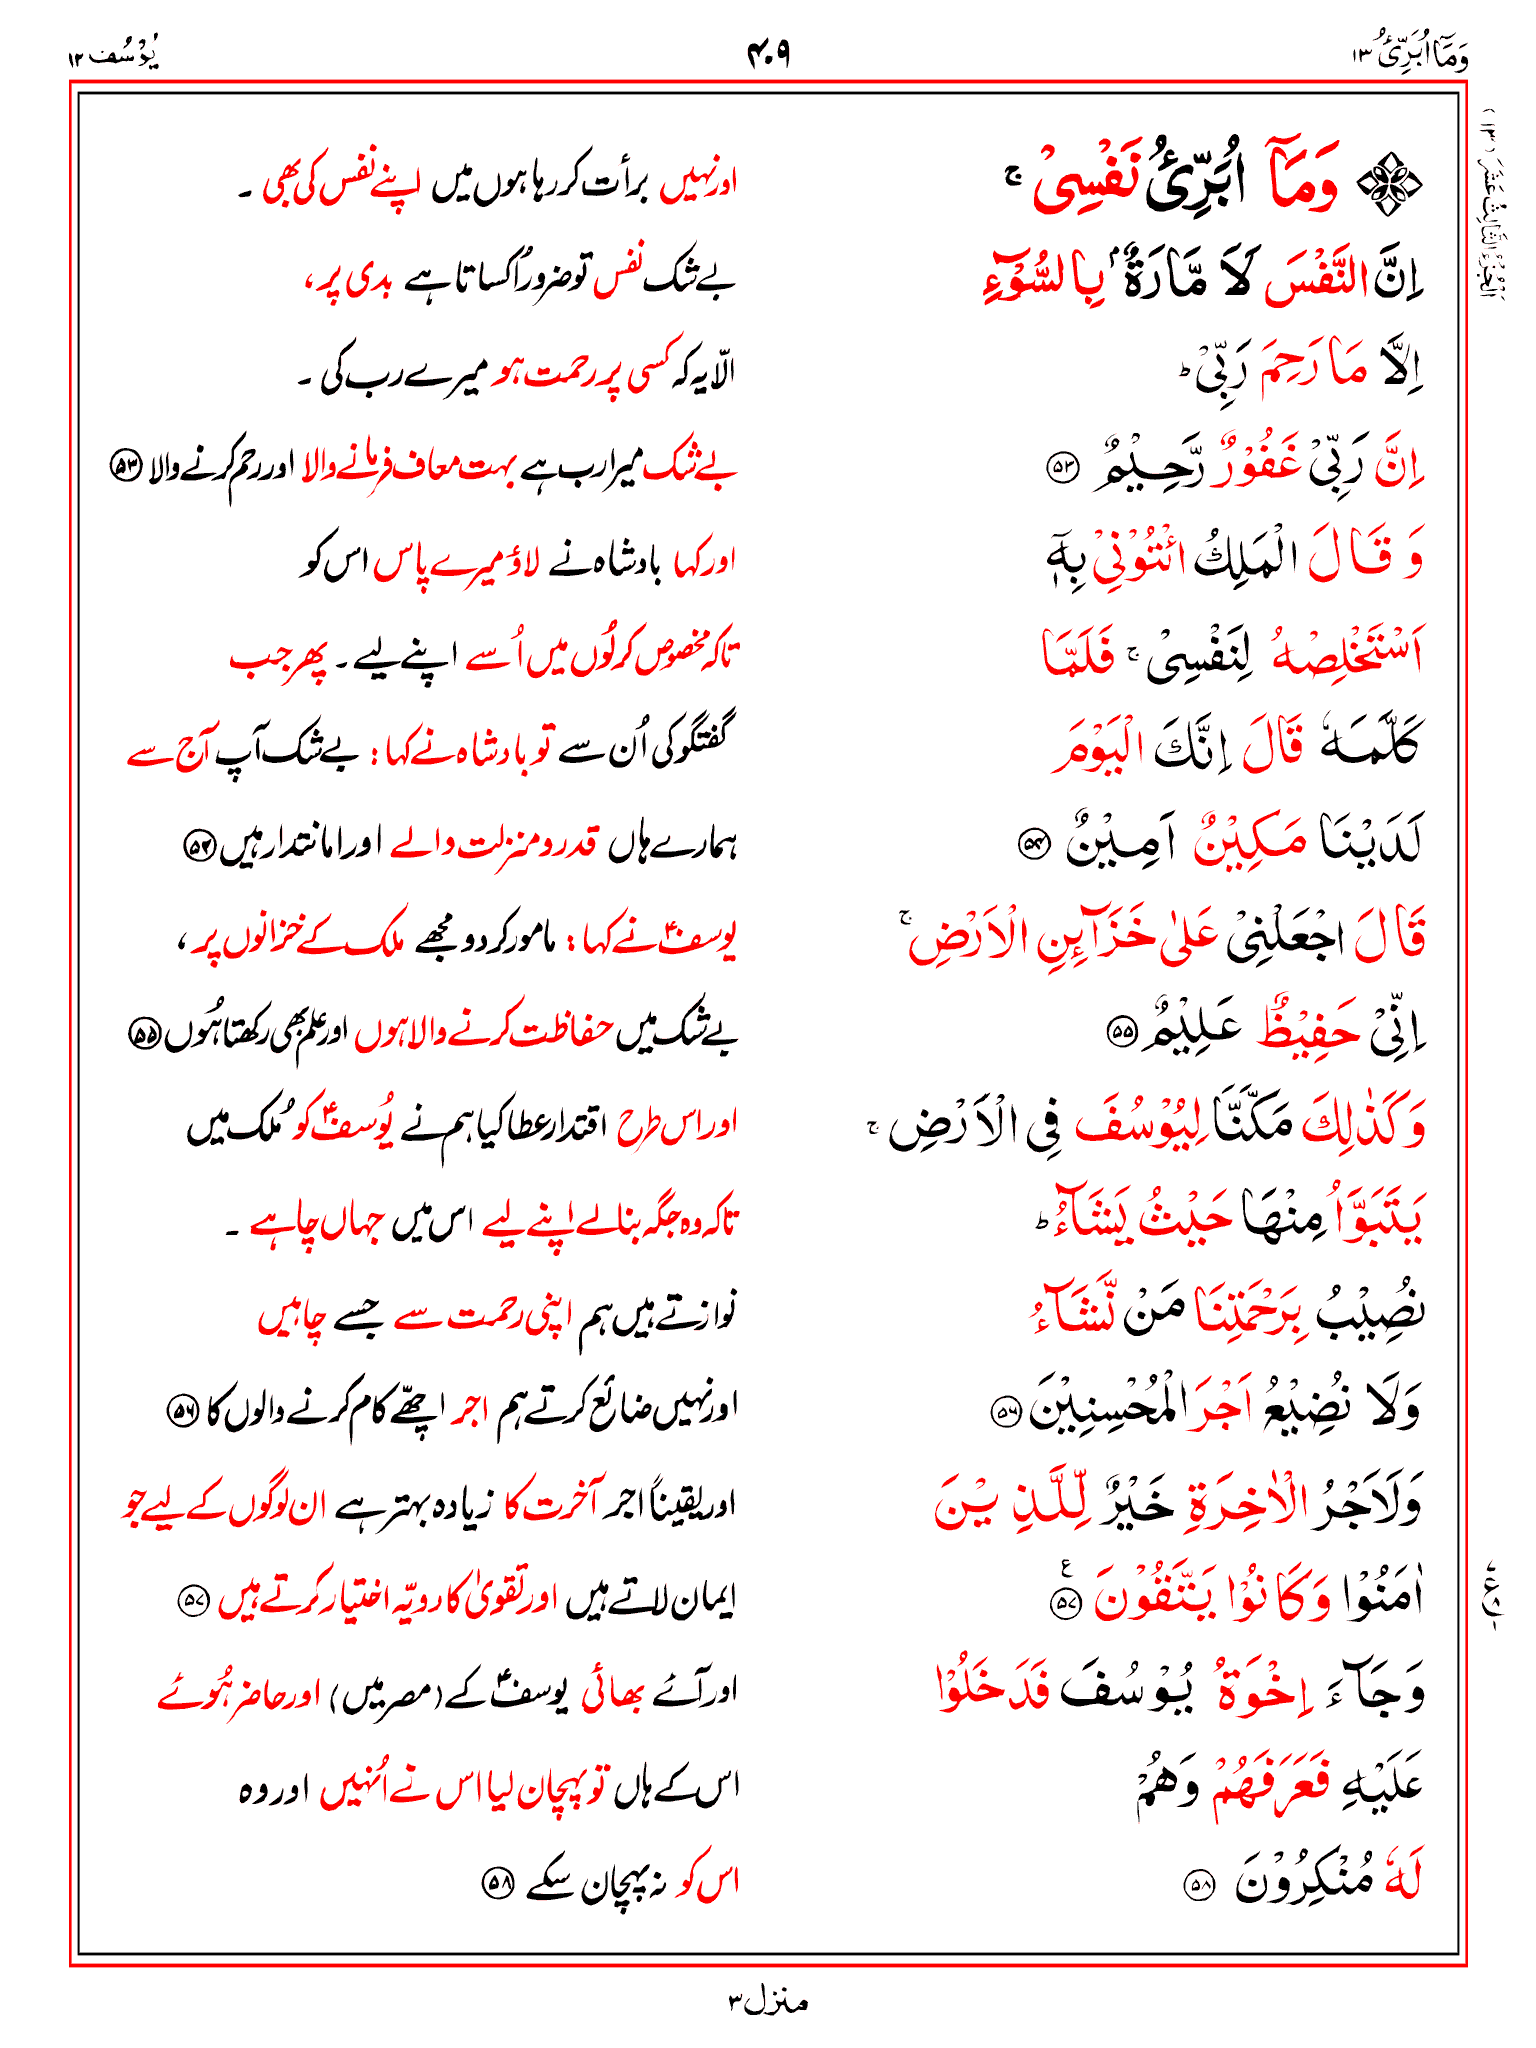 وَمَآ اُبَرِّئُ ۱۳
۴۰۹
یُوْسُف ۱۲
اَلْجُزْءُ الثَّالِثُ عَشَرَ (۱۳)
وَمَآ اُبَرِّئُ نَفْسِىْ ۚ اور نہیں برأت کر رہا ہوں میں اپنے نفس کی بھی ۔
اِنَّ النَّفْسَ لَاَ مَّارَةٌۢ بِالسُّوْٓءِ بے شک نفس تو ضرور اُکساتا ہے بدی پر،
اِلَّا مَا رَحِمَ رَبِّىْ ؕ الّا یہ کہ کسی پر رحمت ہو میرے رب کی ۔
اِنَّ رَبِّىْ غَفُوْرٌ رَّحِيْمٌ ۵۳ بے شک میرا رب ہے بہت معاف فرمانے والا اور رحم کرنے والا ۵۳
وَقَالَ الْمَلِكُ ائْتُوْنِىْ بِهٖٓ اور کہا بادشاہ نے لاؤ میرے پاس اس کو
اَسْتَخْلِصْهُ لِنَفْسِىْ ۚ فَلَمَّا تاکہ مخصوص کرلُوں میں اُسے اپنے لیے ۔ پھر جب
كَلَّمَهٗ قَالَ اِنَّكَ الْيَوْمَ گفتگو کی اُن سے تو بادشاہ نے کہا: بے شک آپ آج سے
لَدَيْنَا مَكِيْنٌ اَمِيْنٌ ۵۴ ہمارے ہاں قدر و منزلت والے اور امانتدار ہیں ۵۴
قَالَ اجْعَلْنِىْ عَلٰى خَزَآئِنِ الْاَرْضِ ۚ یوسفؑ نے کہا: مامور کر دو مجھے ملک کے خزانوں پر،
اِنِّىْ حَفِيْظٌ عَلِيْمٌ ۵۵ بے شک میں حفاظت کرنے والا ہوں اور علم بھی رکھتا ہُوں ۵۵
وَكَذٰلِكَ مَكَّنَّا لِيُوْسُفَ فِى الْاَرْضِ ۚ اور اس طرح اقتدار عطا کیا ہم نے یُوسفؑ کو مُلک میں
يَتَبَوَّاُ مِنْهَا حَيْثُ يَشَآءُ ؕ تاکہ وہ جگہ بنالے اپنے لیے اس میں جہاں چاہے ۔
نُصِيْبُ بِرَحْمَتِنَا مَنْ نَّشَآءُ نوازتے ہیں ہم اپنی رحمت سے جسے چاہیں
وَلَا نُضِيْعُ اَجْرَ الْمُحْسِنِيْنَ ۵۶ اور نہیں ضائع کرتے ہم اجر اچھّے کام کرنے والوں کا ۵۶
وَلَاَجْرُ الْاٰخِرَةِ خَيْرٌ لِّلَّذِيْنَ اور یقیناً اجر آخرت کا زیادہ بہتر ہے ان لوگوں کے لیے جو
اٰمَنُوْا وَكَانُوْا يَتَّقُوْنَ ۵۷ ع ایمان لاتے ہیں اور تقویٰ کا رویّہ اختیار کرتے ہیں ۵۷
وَجَآءَ اِخْوَةُ يُوْسُفَ فَدَخَلُوْا اور آئے بھائی یوسفؑ کے (مصر میں) اور حاضر ہُوئے
عَلَيْهِ فَعَرَفَهُمْ وَهُمْ اس کے ہاں تو پہچان لیا اس نے اُنہیں اور وہ
لَهٗ مُنْكِرُوْنَ ۵۸ اس کو نہ پہچان سکے ۵۸
منزل ۳